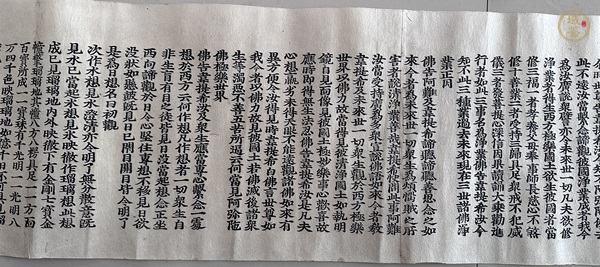 此不遠汝當繫念諦觀彼國淨業成者我今
為汝廣說眾譬亦令未來世一切凡夫欲修
淨業者得生西方極樂國土欲生彼國者當
修三福一者孝養父母奉事師長慈心不殺
修十善業二者受持三歸具足眾戒不犯威
儀三者發菩提心深信因果讀誦大乘勸進
行者如此三事名為淨業佛告韋提希汝今
知不此三種業過去未來現在三世諸佛淨
業正因
佛告阿難及韋提希諦聽諦聽善思念之如
來今者為未來世一切眾生為煩惱賊之所
害者說清淨業善哉韋提希快問此事阿難
汝當受持廣為多眾宣說佛語如來今者教
韋提希及未來世一切眾生觀於西方極樂
世界以佛力故當得見彼清淨國土如執明
鏡自見面像見彼國土極妙樂事心歡喜故
應時即得無生法忍佛告韋提希汝是凡夫
心想羸劣未得天眼不能遠觀諸佛如來有
異方便令汝得見時韋提希白佛言世尊如
我今者以佛力故見彼國土若佛滅後諸眾
生等濁惡不善五苦所逼云何當見阿彌陀
佛極樂世界
佛告韋提希汝及眾生應當專心繫念一處
想於西方云何作想凡作想者一切眾生自
非生盲有目之徒皆見日沒當起想念正坐
西向諦觀於日令心堅住專想不移見日欲
沒狀如懸鼓既見日已閉目開目皆令明了
是為日想名曰初觀
次作水想見水澄清亦令明了無分散意既
見水已當起冰想見冰映徹作琉璃想此想
成已見琉璃地內外映徹下有金剛七寶金
幢擎琉璃地其幢八方八楞具足一一方面
百寶所成一一寶珠有千光明一一光明八
萬四千色映琉璃地如億千日不可具見